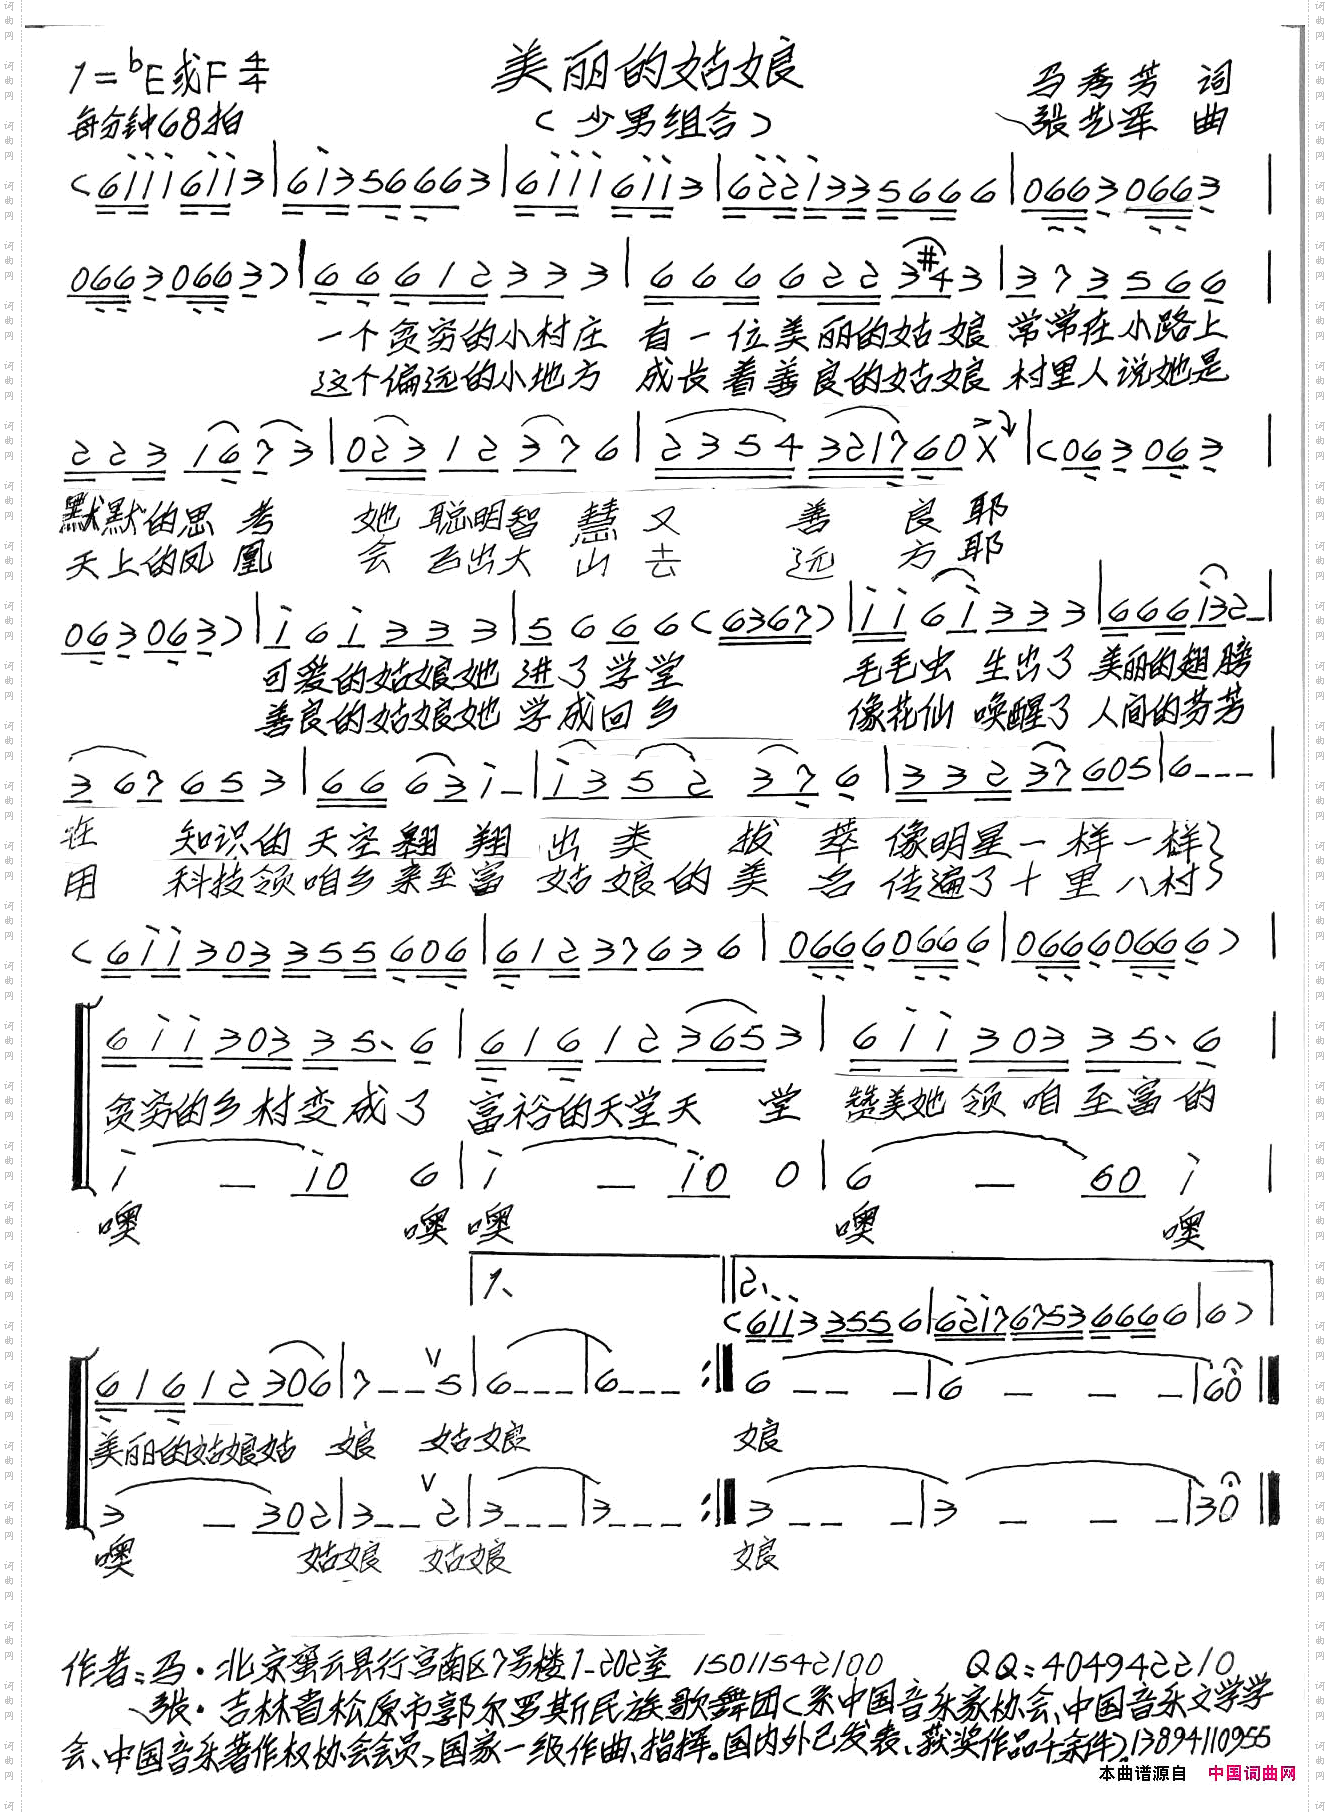 美丽的姑娘
1=bE或F 4/4
每分钟68拍
（少男组合）
马秀芳 词
张艺军 曲
(6iii6ii3|6i356663|6iii6ii3|622i335666|06630663|
06630663)|66612333|6666223#43|373566
一个贫穷的小村庄 有一位美丽的姑娘 常常在小路上
这个偏远的小地方 成长着善良的姑娘 村里人说她是
2231673|02312376|2354321760X|(063063
默默的思考 她聪明智慧又善良耶
天上的凤凰 会飞出大山去远方耶
063063)|i6i333|5666(6367)|ii6i333|666i32-|
可爱的姑娘她 进了学堂 毛毛虫 生出了 美丽的翅膀
善良的姑娘她 学成回乡 像花仙 唤醒了 人间的芬芳
3676533|6663i-|i352376|33237605|6---|
在 知识的天空翱翔 出类拔萃 像明星一样一样
用 科技领咱乡亲至富 姑娘的美名 传遍了十里八村
(6ii303355606|6123763 6|06660666|06660666)|
6ii30335·6|616123653|6ii30335·6|
贫穷的乡村变成了 富裕的天堂天堂 赞美她领咱至富的
i - i0 6|i - i0 0|6 - 60 i|
噢 噢 噢 噢 噢
1、 2、
(6ii333556|62i7675366666|6)
61612306|7--5|6---|6---:|6---|6---|60||
美丽的姑娘姑 娘 姑娘 娘
3 - 302|3--2|3---|3---:|3---|3---|30||
噢 姑娘 姑娘 娘
作者：马·北京密云县行宫南区7号楼1-202室 15011542100 QQ：404942210
张·吉林省松原市郭尔罗斯民族歌舞团（系中国音乐家协会、中国音乐文学学
会、中国音乐著作权协会会员，国家一级作曲、指挥。国内外已发表、获奖作品千余件）。13894110955
本曲谱源自 中国词曲网